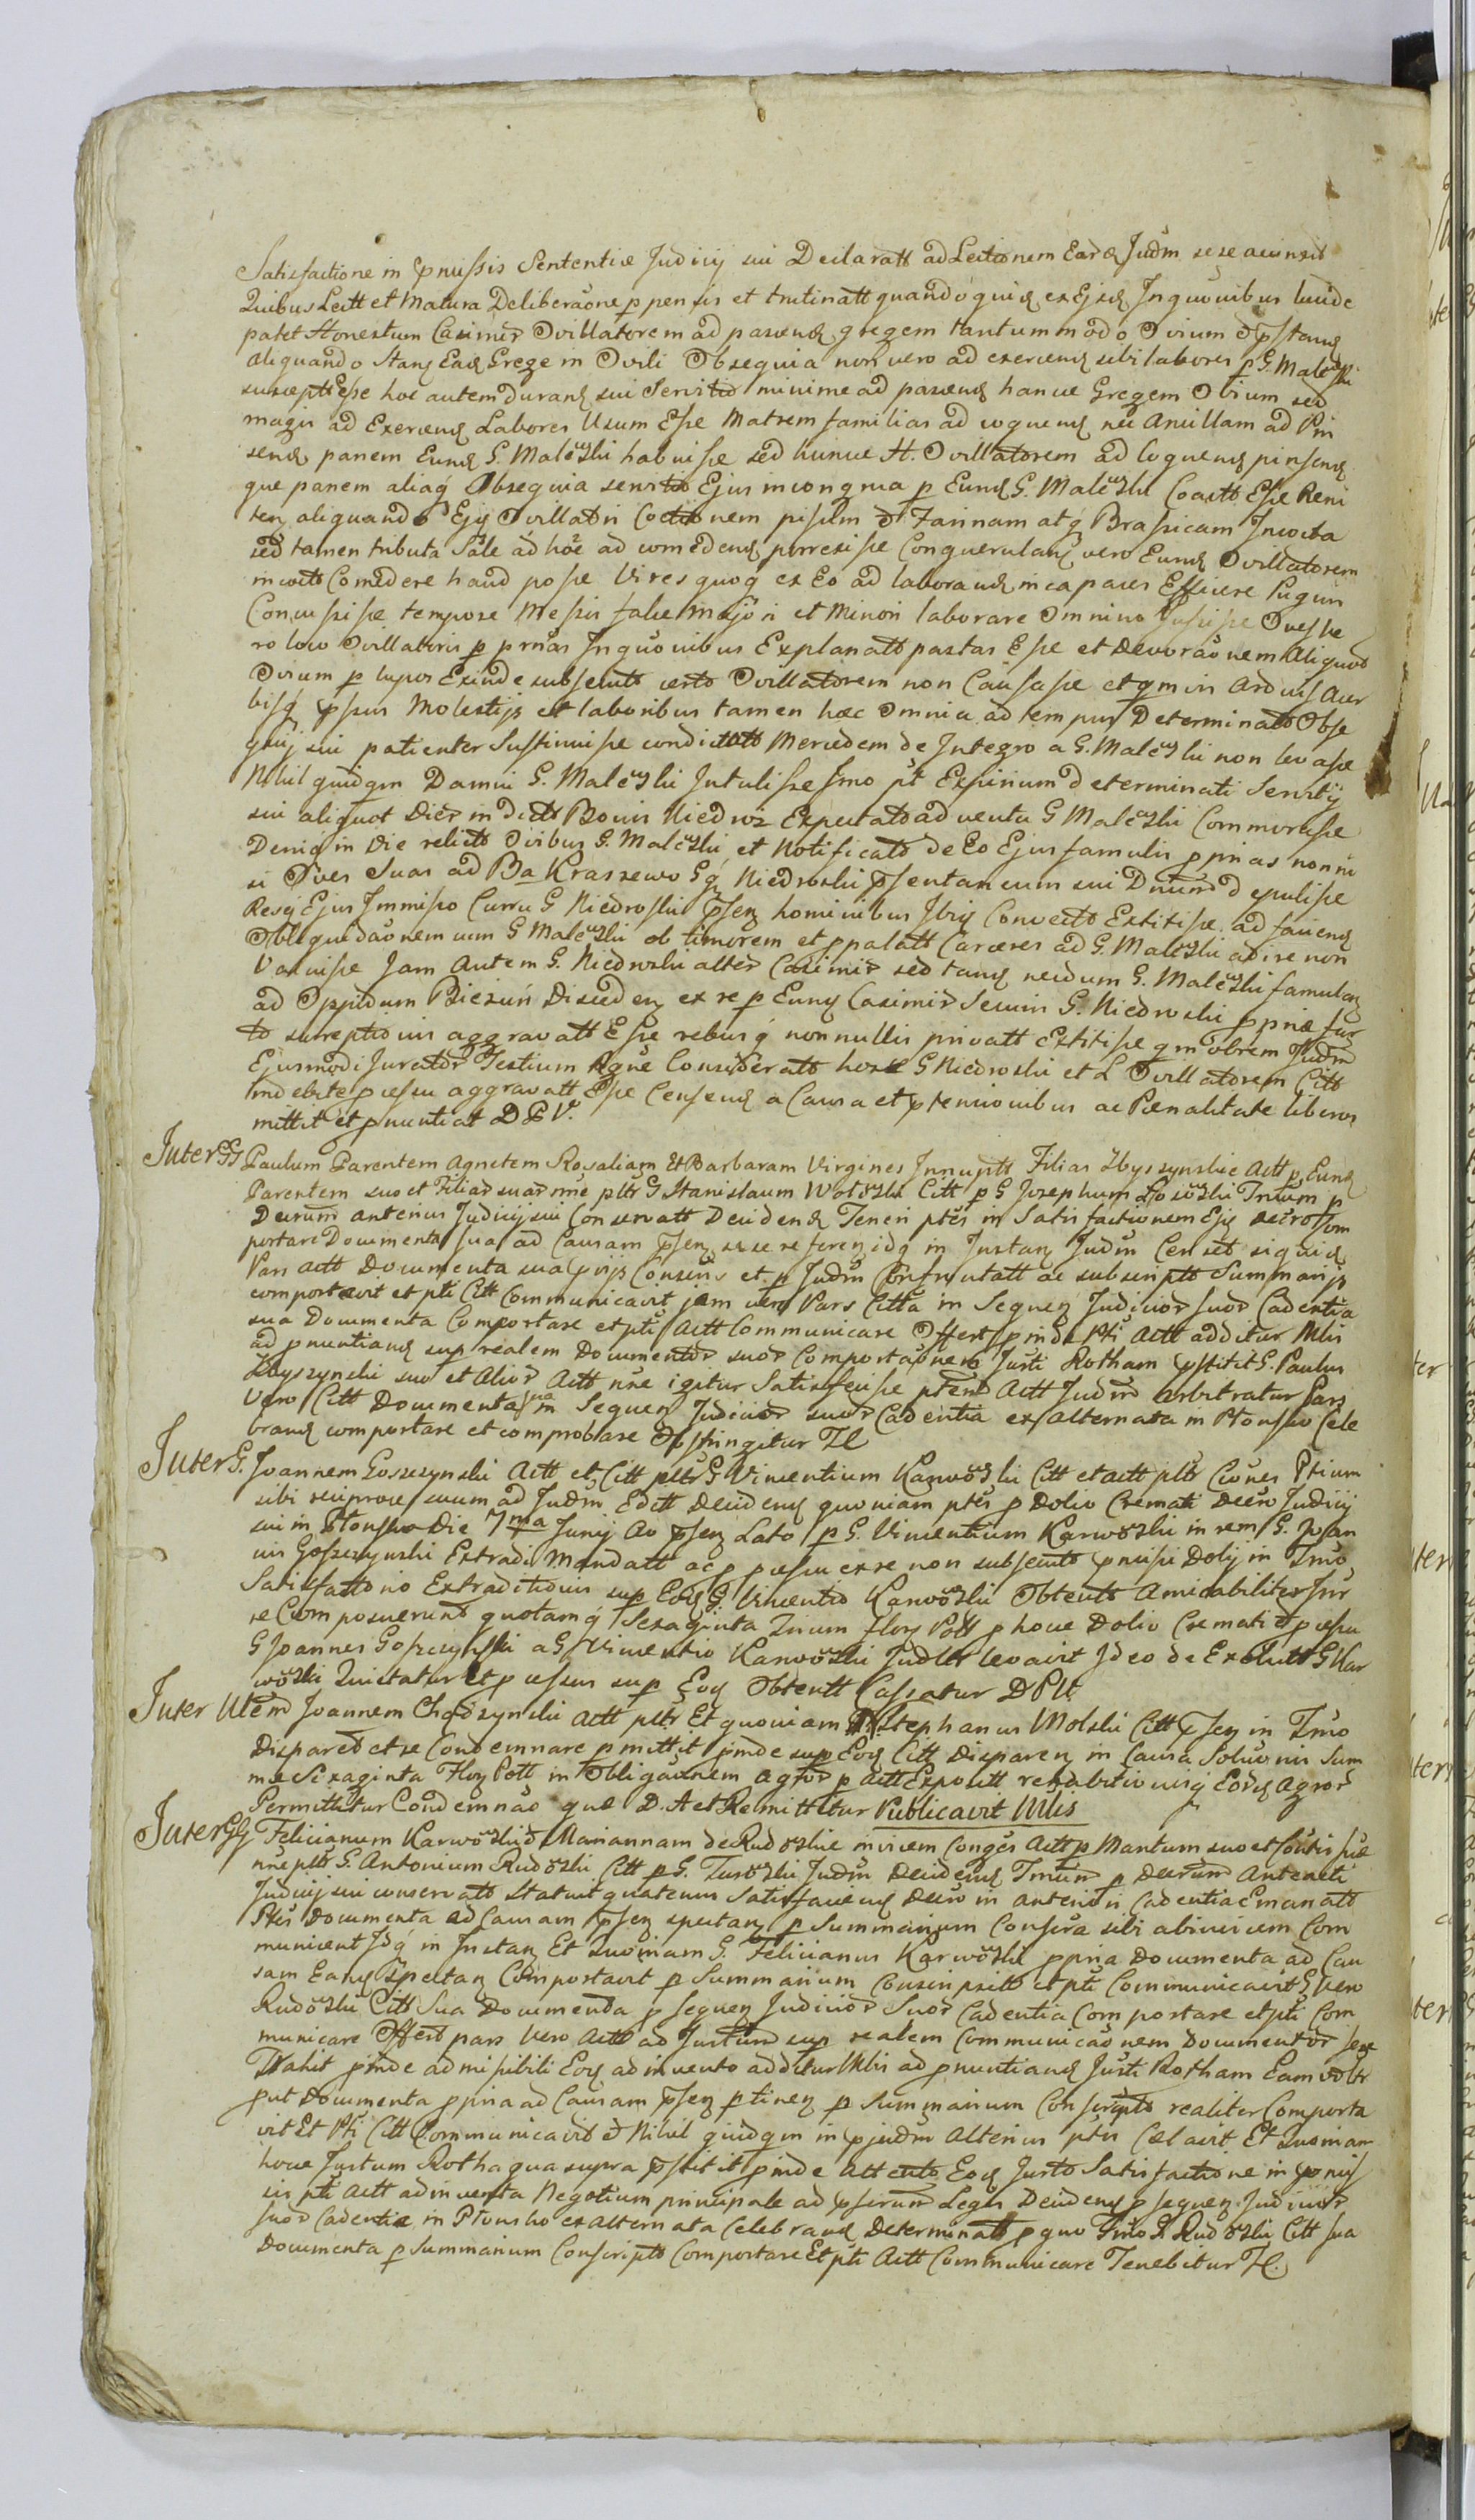 Satisfactione in pmissis Sententiæ Judicij sui Declaratt ad Lectionem Eard Judm sese accinxit
Quibus Lectt et Matura Deliberaone p pensis et trutinatt quandoquid ex Ejsd Inquonibus luide
patet Honestum Casimir Ovillatorem ad pascend gregem tantummodo Ovium
aliquando Stan Ead Gregem Ovili Obsequia non vero ad exercend sibi labores p G. Malewski
susceptt Esse hoc autem durand sui Servitio minime ad pascend hance Gregem Ovium sed
magis ad Exercend Labores Usum Esse Matrem familias ad coquend nec Ancillam ad Pin
send panem Eund G. Malewski habuisse sed hunce H. Ovillatorem ad Coquend pinsend
que panem aliaq Obsequia servitio Ejus incongrua p Eund G. Malewski Coactt Esse Reni
ten aliquando Ejq Ovillatori Coctionem pisum & Farinam atq Brassicam Incocta
sed tamen tributa Sale ad hoc ad comedend porrexisse Conquerulan vero Eund Ovillatorem
incocta Comedere haud posse Vires quoq ex Eo ad laborand incapaces Efficere Pugnis
Concussisse tempore Messis falce majori et Minori laborare Omnino Jussisse Oves ve
ro loco Ovillatoris p prnas Inquonibus Explanatt pastas Esse et Devoraonem Aliquot
Ovium p lupos Exinde subsecuto certo Ovillatorem non Causasse et qmin Arduis Acer
bisq pssus Molestijs et laboribus tamen hæc Omnia ad tempus Determinatt Obse
quij sui patienter Sustinuisse condictatt Mercedem de Integro a G. Malewski non levasse
Nihil quidqm Damni G. Malewski Intulisse Imo pt Expirium determinati Servitij
sui aliquot Dier in dictt Bonis Niedroz Expectato adventu G Malewski Commorasse
Deniq in Die relicto Ovibus G. Malewski et Notificato de Eo Ejus famulis pprias nonni
si Oves Suas ad Ba Kraszewo Gq Niedroski psentaneum sui Dnum depulisse
Resq Ejus Immisso Curru G Niedroski psen hominibus Ibiq Convecto Extitisse ad faciend
Obliquidaonem cum G Malewski ob timorem et ppalatt Carceres ad G. Malewski adire non
Valuisse Jam Autem G. Niedroski alter Casimir sed tand necdum G. Malewski famulan
ad Oppidum Bieżuń Disceden ex re p Eund Casimir Secuis G. Niedroski ppriæ fur
to surreptionis aggravatt Esse rebusq nonnullis privatt Extitisse qm obrem Judm
Ejusmodi Jurator Testium Rgne Considerato hosce G Niedroski et L Ovillatorem Citt
indebite pcessu aggravatt Esse Censend a Causa et ptensionibus ac Pænalitate liberos
mittit et pnuntiat D P V.
Inter GG Paulum Parentem Agnetem Rosaliam Et Barbaram Virgines Innuptt Filias Zbyszynskie Actt p Eund
Parentem suo et Filiar suar nne pltr G Stanislaum Wolski Citt p G Josephum Łosiewski Tnium p
Decrum anterius Judicij sui Conservatt Decidend Teneri ptes in Satisfactionem Ejq decreto Com
portare Documenta sua ad Causam psen sese referen idq in Instan Judm Censet siquid
Pars Actt Documenta sua pvijs Consens et p Judm Confrontatt ac subscriptt Summarijs
comportavit et pti Citt Communicavit jam vero Pars Citta in Sequen Judicior suor Cadentia
sua Documenta Comportare et pti Actt Communicare Offert pinde Pti Actt additur Mlis
ad pnuntiand sup realem Documentor suor Comportaonem Justi Rotham pstitit G. Paulus
Zbyszynski suo et Alior Actt nne igitur Satisfecisse ptem Actt Judm arbitratur Pars
vero Citt Documenta sua in Sequen Judicior suor Cadentia ex alternata in Płonsko Cele
brand comportare et comprobare Obstringitur TC
Inter G. Joannem Goszczynski Actt et Citt pltr G Vincentium Karwoski Citt et actt pltr Cione Ptium
sibi reciproce suum ad Judm Editt Decidend quoniam ptes p Dolio Cremati Decro Judicij
sui in Płonsko Die 7ma Junij Ao psen Lato p G. Vincentium Karwoski in rem G. Joan
nis Goszczynski Extradi Mandatt ac p pcessu ex re non subsecuto pmissi Dolij in Tmo
Satisfattorio Extraditionis sup Eod G Vincentio Karwoski Obtento Amicabiliter Inr
se Composuerunt quotamq Sexaginta Trium flor Poll p hoce Dolio Cremati & pcessu
G Joannes Goszczynski a G Vincentio Karwoski Judltr levavit Ideo de Exolutt G Kar
woski Quietatur et pcessus sup Eod Obtentt Cassatur D P V.
Inter Utem Joannem Chądzynski Actt pltr Et quoniam Stephanus Wolski Citt psen in Tmo
Disparet et se Condemnare pmittit pinde sup Eod Citt Disparen in Causa Soluonis Sum
mæ Sexaginta Flor Poll in Obligaonem agror p Actt Exposittt rehabitionisq Eord Agror
Permittitur Condemnao quæ D. A et Remittitur Publicavit Mlis
Inter GG Felicianum Karwoski & Mariannam de Rudowskie invicem Conges Actt p Maritum suo et Contis suæ
nne pltr G. Antonium Rudowski Citt p G. Turowski Judm Decidend Tmium p Decrum Antelati
Judicij sui conservatt Statuit quatenus Satisfaciend Decro in anteriori Cadentia Emanatt
Ptes Documenta ad Causam psen spectan p Summarium Conscra sibi abinvicem Com
municent Idq in Instan Et Quoniam G. Felicianus Karwoski ppria Documenta ad Cau
sam Eand Spectan Comportavit p Summarium Conscripsitt et pti Communicavit G vero
Rudowski Citt Sua Documenta p Sequen Judicior Suor Cadentia Comportare et pti Com
municare Offert pars Vero Actt ad Justum sup realem Communicaonem Documentor sese
Trahit pinde admissibili Eod adinvento additur Mlis ad pnuntiand Justi Rotham Eam
put Documenta ppria ad Causam psen ptinen p Summarium Conscripto realiter Comporta
vit Et Pti Citt Communicavit & Nihil quidqm in pjudm Alterius ptis Celavit Et Quoniam
hoce Justum Rotha qua supra pstitit pinde Attento Eod Justo Satisfactione in pmis
sis pti Actt adinventa Negotium principale ad pscrum Legis Decidend p sequen Judicior
suor Cadentia in Płonsko ex alternata Celebrand Determinatt p quo Tmo G Rudowski Citt sua
Documenta p Summarium Conscriptt Comportare Et pti Actt Communicare Tenebitur TC.